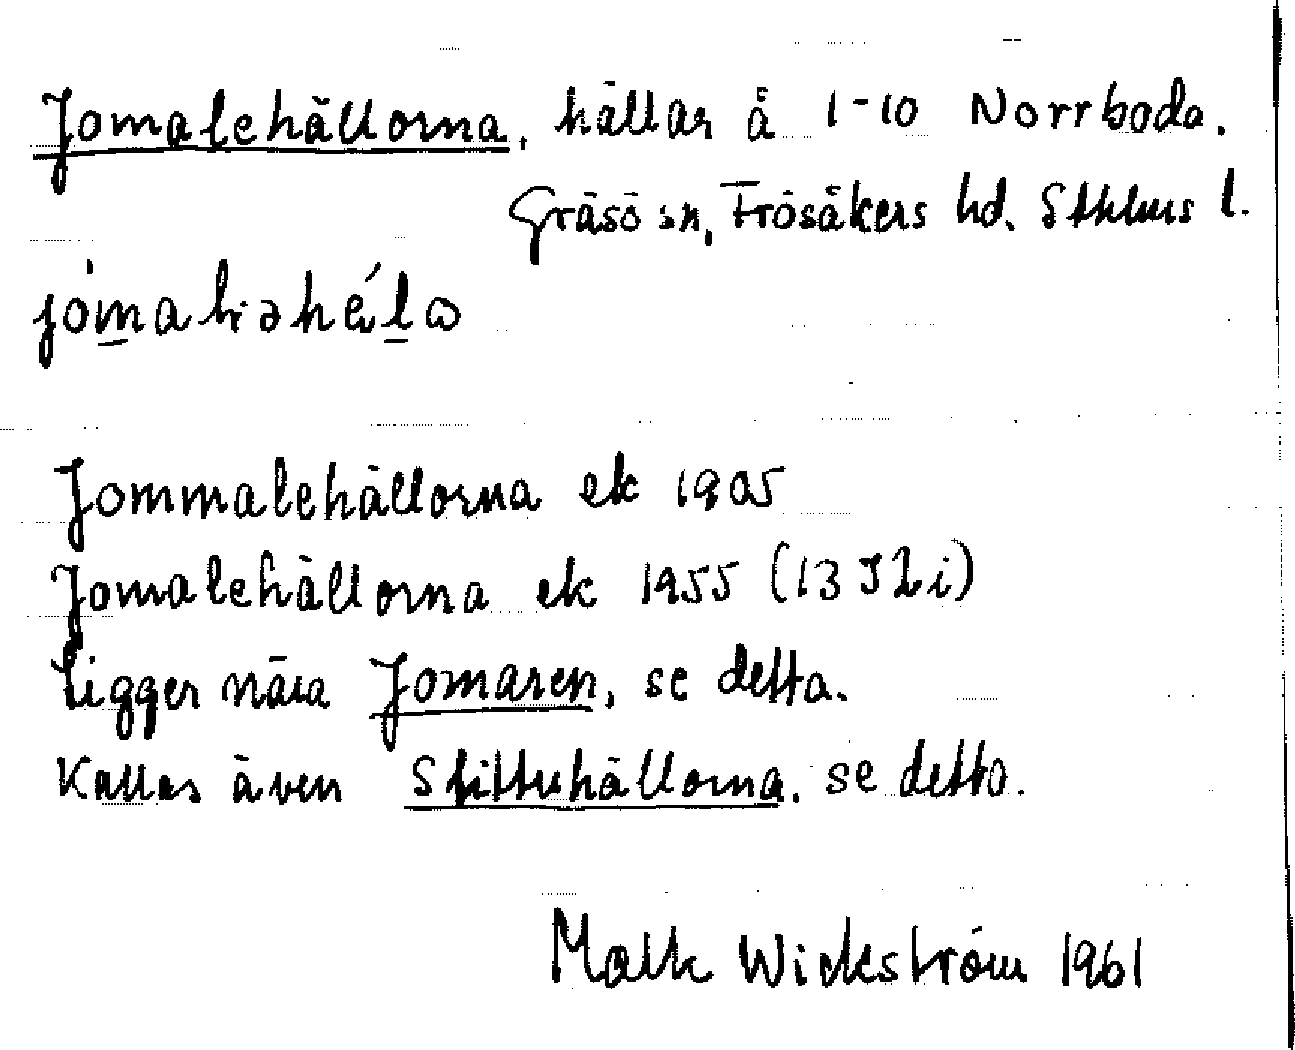 Jomalehällorna, hällar å 1-10 Norrboda.
Gräsö sn, Frösåkers hd. Sthlms l.
Jommalehällorna ek 1905
Jomalehällorna ek 1955 (13 I 2 i)
Ligger nära Jomaren, se detta.
Kallas även Skittuhällorna, se detta.
Maik Wickström 1961